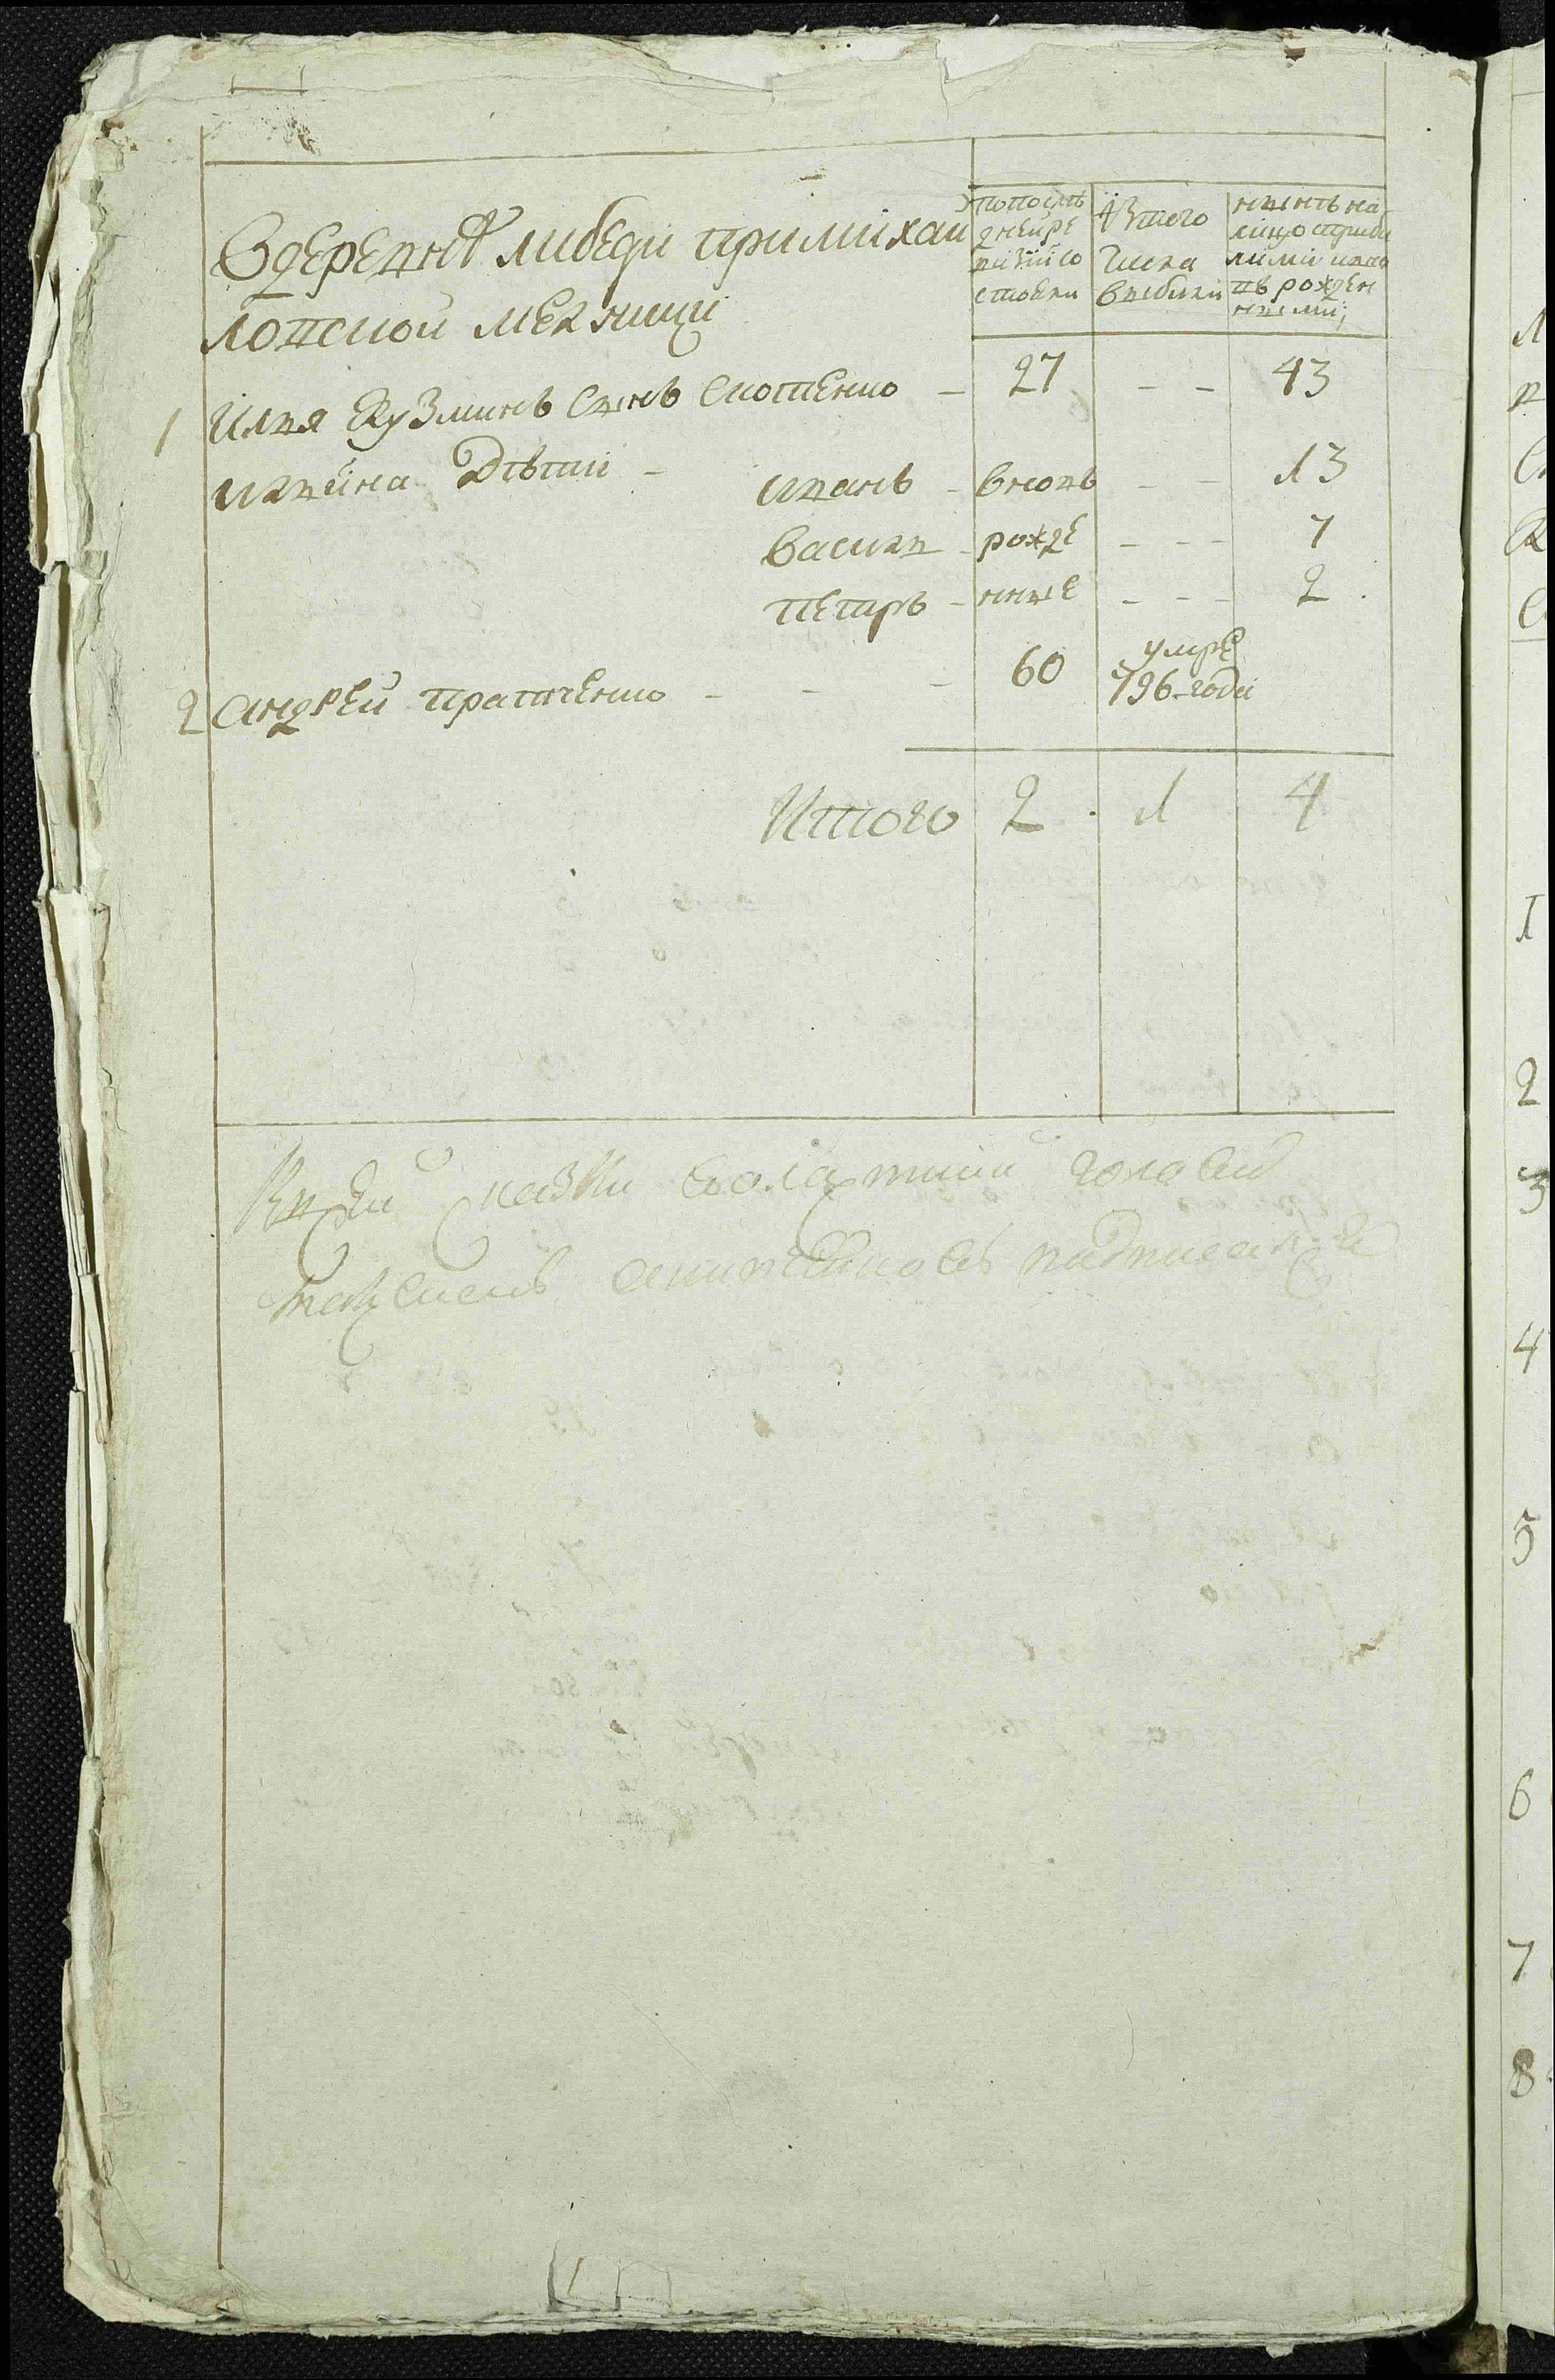 Въ деревнѣ либеди примихаи
ловской мелницы
по послѣ
дней ре
визии со
стояли
изъ того
числа
выбыли
ныне на
лицо с прибы
лыми и вно
въ рожден
ными
1 Илья Кузминъ сынъ Скотенко - 27 - - 43
Ильина дѣти - иванъ - вновь - - 13
василь - рожде - - - 7
петръ - нные - - - 2
2 андрей пратченко - - - 60 умре 796 года
Итого 2 1 4
К сей сказки
подписался
1
2
3
4
5
6
7
8